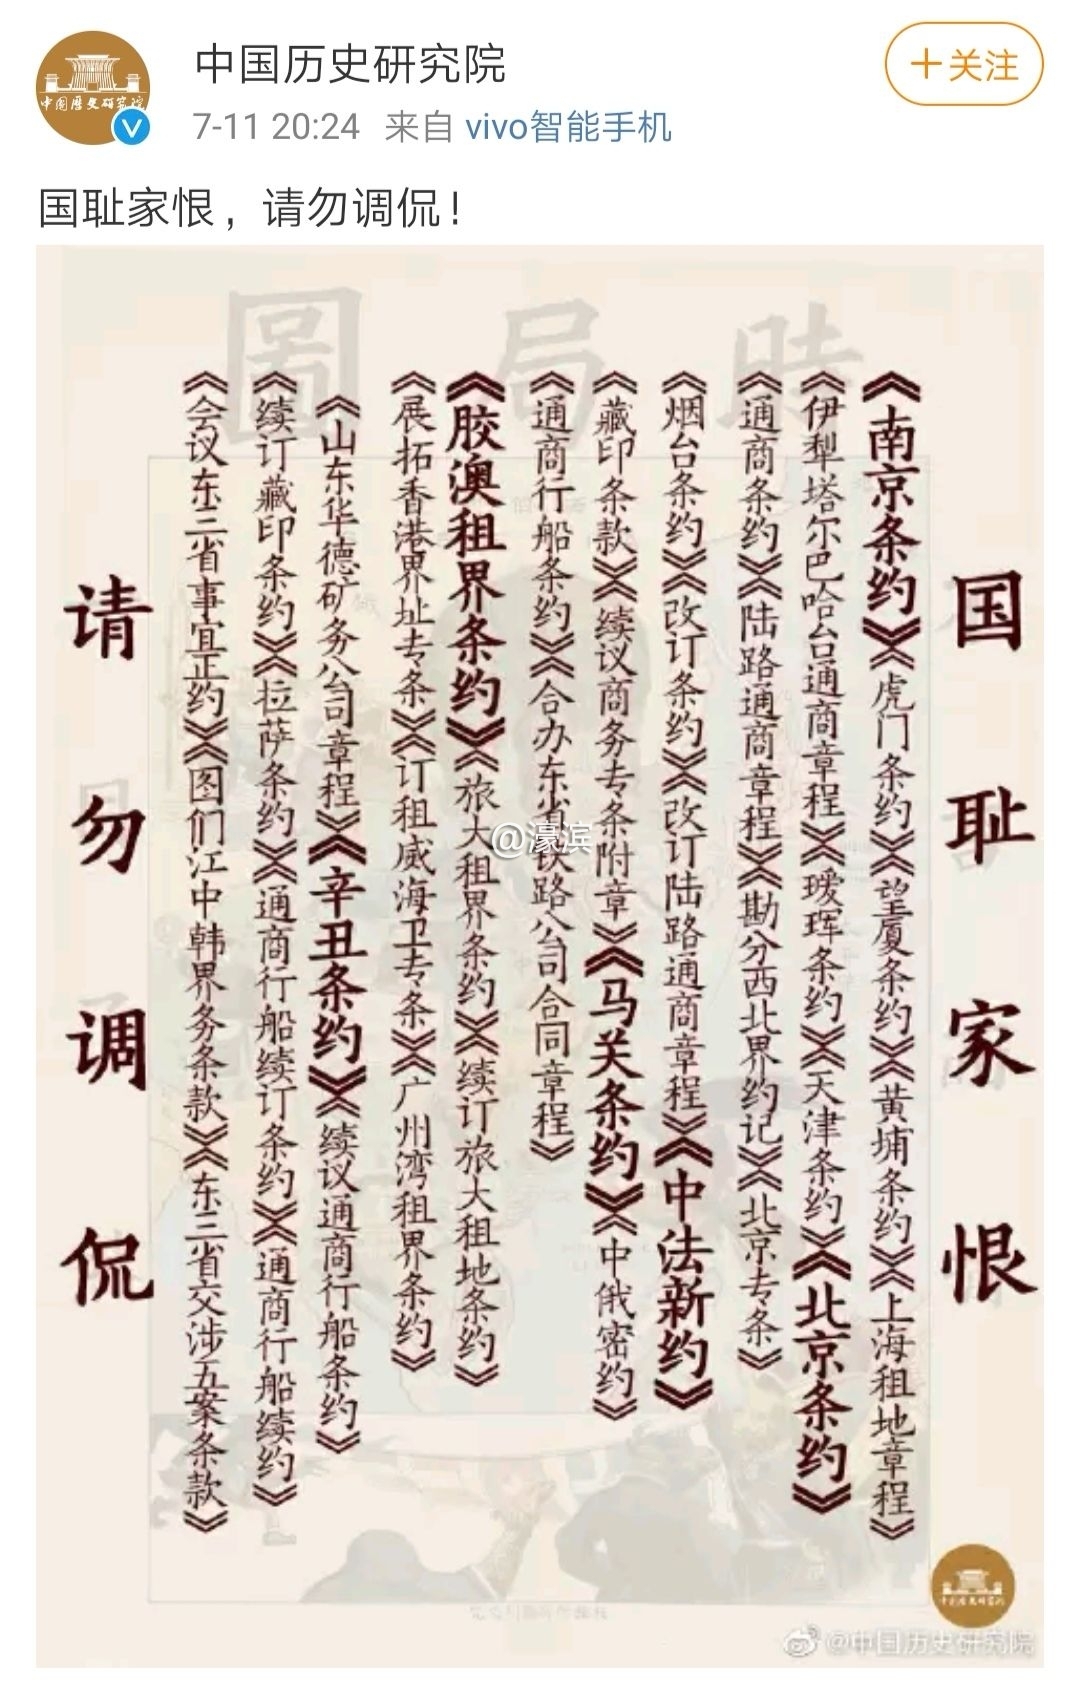 中国历史研究院
中國歷史研究院
+关注
7-11 20:24 来自 vivo智能手机
国耻家恨，请勿调侃！
時局圖
国耻家恨
《南京条约》《虎门条约》《望厦条约》《黄埔条约》《上海租地章程》
《伊犁塔尔巴哈台通商章程》《瑷珲条约》《天津条约》《北京条约》
《通商条约》《陆路通商章程》《勘分西北界约记》《北京专条》
《烟台条约》《改订条约》《改订陆路通商章程》《中法新约》
《藏印条款》《续议商务专条附章》《马关条约》《中俄密约》
《通商行船条约》《合办东省铁路公司合同章程》
《胶澳租界条约》《旅大租界条约》《续订旅大租地条约》
《展拓香港界址专条》《订租威海卫专条》《广州湾租界条约》
《山东华德矿务公司章程》《辛丑条约》《续议通商行船条约》
《续订藏印条约》《拉萨条约》《通商行船续订条约》《通商行船续约》
《会议东三省事宜正约》《图们江中韩界务条款》《东三省交涉五案条款》
请勿调侃
@濠滨
中國歷史研究院
@中国历史研究院